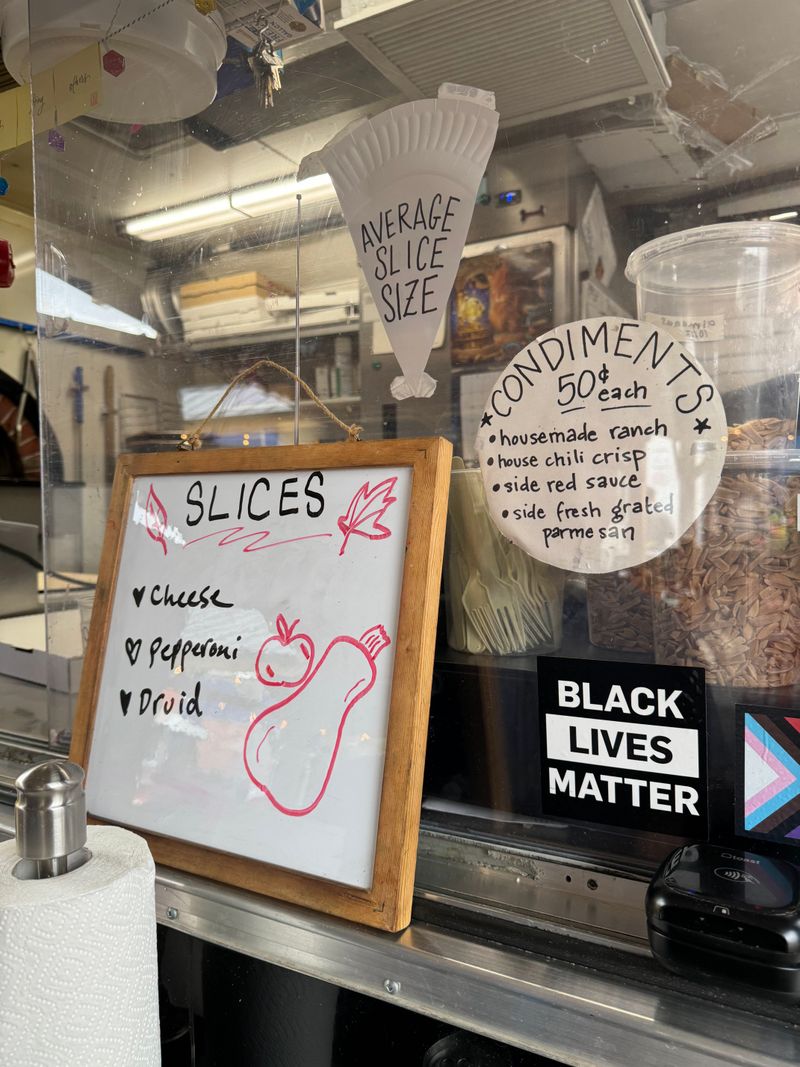 AVERAGE
SLICE
SIZE
CONDIMENTS
50¢ each
• housemade ranch
• house chili crisp
• side red sauce
• side fresh grated
parmesan
SLICES
♥ Cheese
♥ Pepperoni
♥ Druid
BLACK
LIVES
MATTER
toast